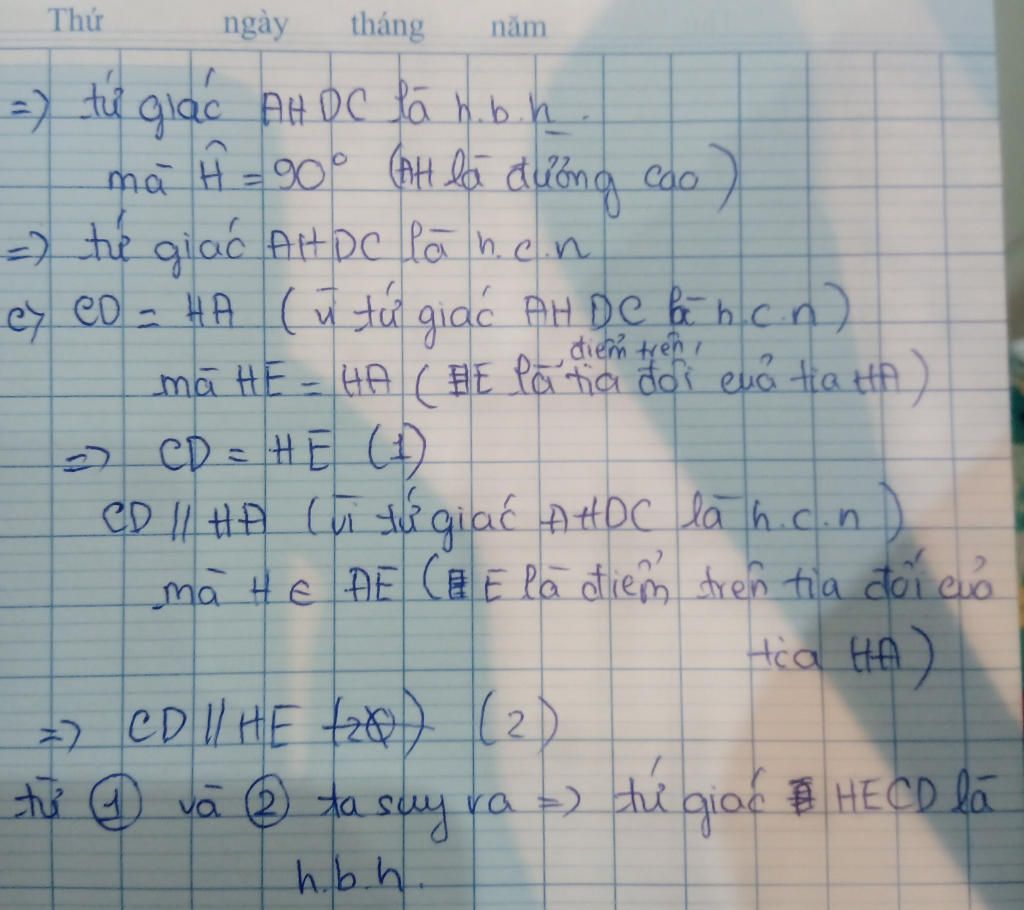 Thứ ngày tháng năm
=> tứ giác AHDC là h.b.h.
mà Ĥ = 90° (AH là đường cao)
=> tứ giác AHDC là h.c.n
c) CD = HA (vì tứ giác AHDC là h.c.n)
điểm trên
mà HE = HA (E là tia đối của tia HA)
=> CD = HE (1)
CD // HA (vì tứ giác AHDC là h.c.n)
mà H ∈ AE (E là điểm trên tia đối của
tia HA)
=> CD // HE (2)
từ ① và ② ta suy ra => tứ giác HECD là
h.b.h.